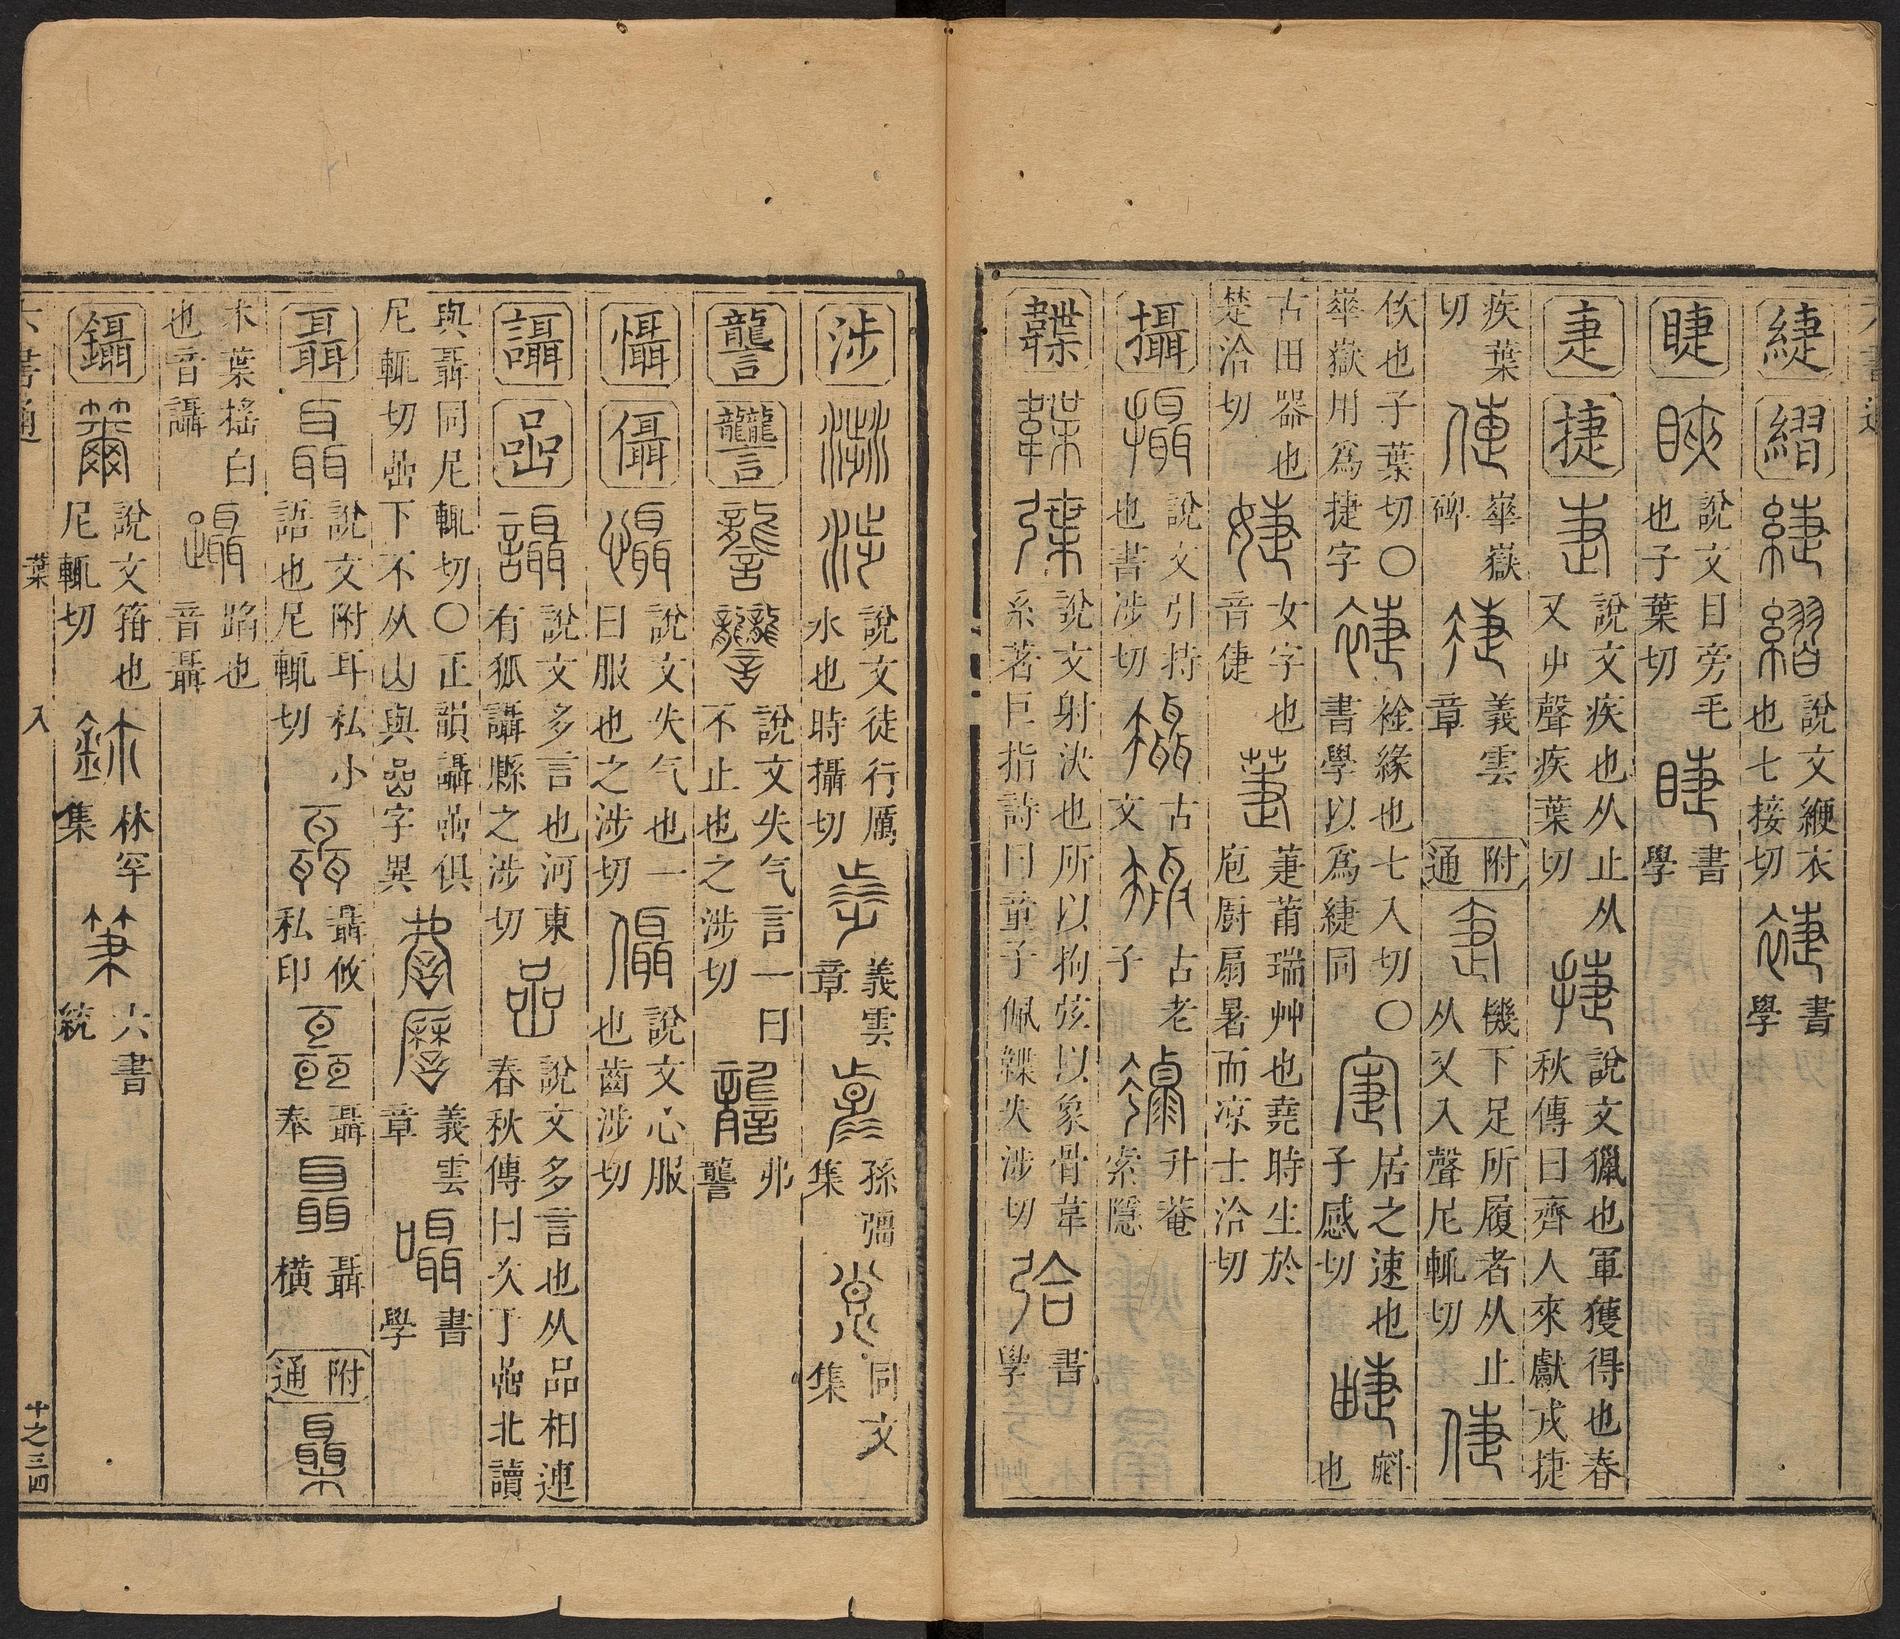 緁 緝 說文緶衣也七接切 書學
睫 說文目旁毛也子葉切 書學
疌 捷 說文疾也从止从又屮聲疾葉切 說文獵也軍獲得也春秋傳曰齊人來獻戎捷
疾葉切 華嶽碑 義雲章 附通 機下足所履者从止从又入聲尼輒切
佽也子葉切〇華嶽用爲捷字 衱緣也七入切〇書學以爲緁同 居之速也子感切 㪺也
古田器也楚洽切 女字也音倢 萐莆瑞艸也堯時生於庖廚扇暑而凉士洽切
攝 說文引持也書涉切 古文 古老子 升菴索隱
韘 說文射決也所以拘弦以象骨韋系著巨指詩曰童子佩韘失涉切 書學
涉 說文徒行厲水也時攝切 義雲章 孫彊集 同文集
讋 說文失气言一曰不止也之涉切 㳄讋
懾 㒤 說文失气也一曰服也之涉切 說文心服也齒涉切
讘 嵒 說文多言也河東有狐讘縣之涉切 說文多言也从品相連春秋傳曰次于嵒北讀
與聶同尼輒切〇正韻讘嵒俱尼輒切嵒下不从山與嵒字異 義雲章 書學
聶 說文附耳私小語也尼輒切 聶攸私印 聶奉 聶橫 附通
木葉搖白也音讘 蹈也音聶
鑷 說文箝也尼輒切 林罕集 六書統
六書通 葉 入 十之三四